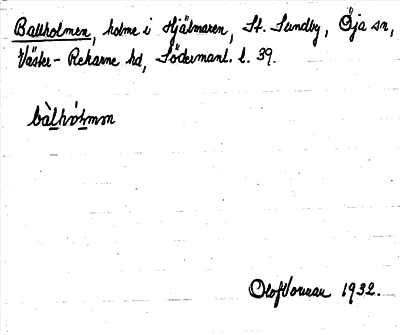 Ballholmen, holme i Hjälmaren, St. Sundby, Öja sn,
Väster-Rekarne hd, Södermanl. l. 39.
bàlhòlmən
Olof Vorren 1932.